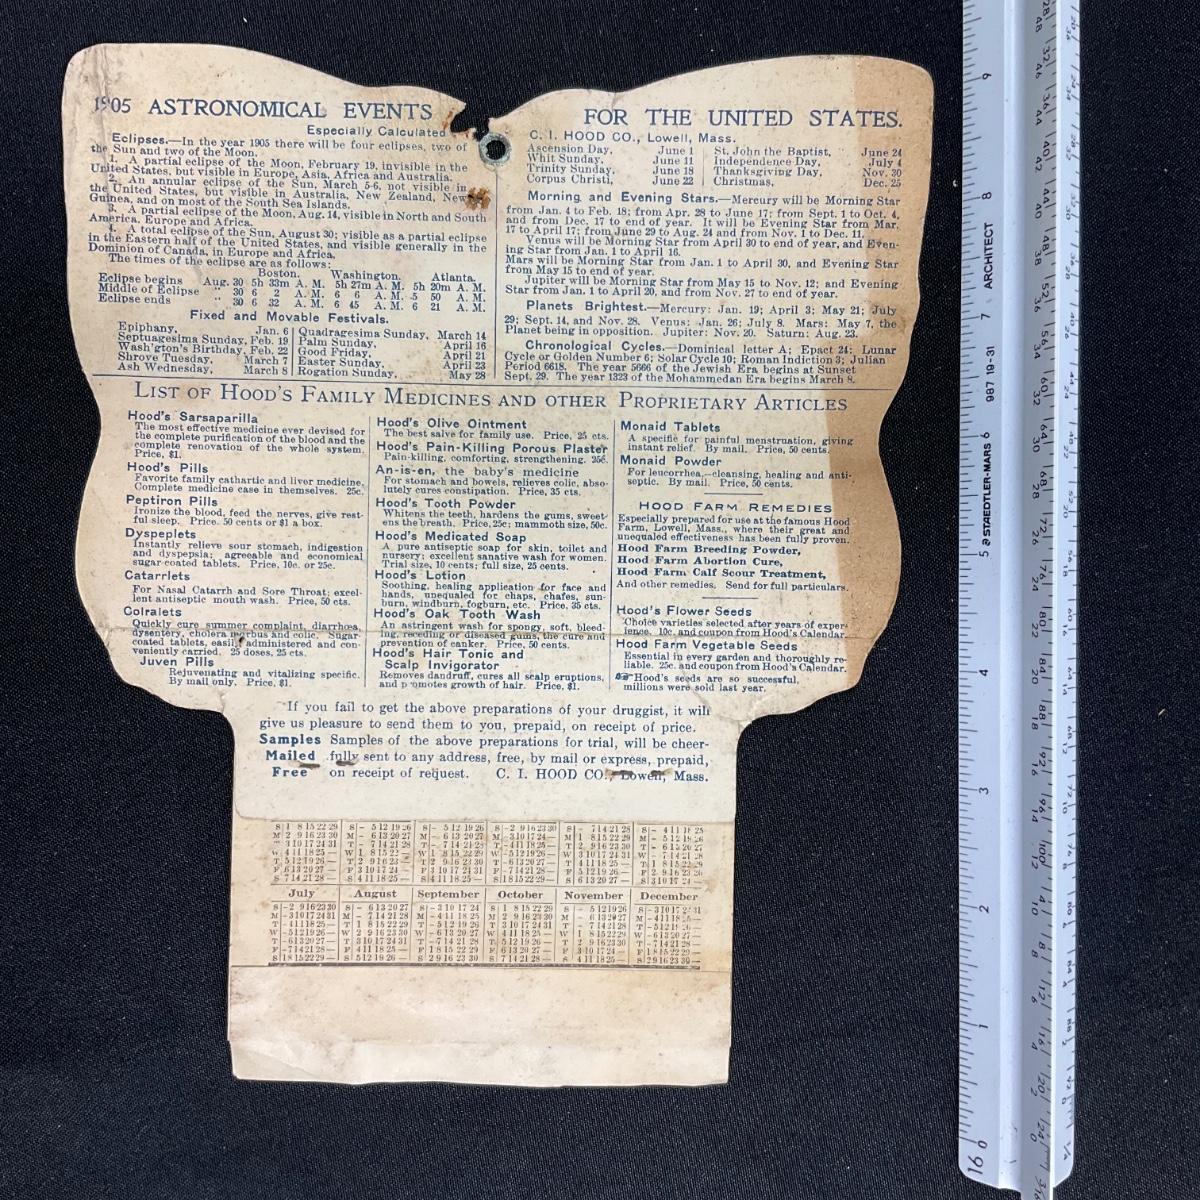 1905 ASTRONOMICAL EVENTS FOR THE UNITED STATES.
Especially Calculated
C. I. HOOD CO., Lowell, Mass.
Eclipses.—In the year 1905 there will be four eclipses, two of
the Sun and two of the Moon.
1. A partial eclipse of the Moon, February 19, invisible in the
United States, but visible in Europe, Asia, Africa and Australia.
2. An annular eclipse of the Sun, March 5-6, not visible in
the United States, but visible in Australia, New Zealand, New
Guinea, and on most of the South Sea Islands.
3. A partial eclipse of the Moon, Aug. 14, visible in North and South
America, Europe and Africa.
4. A total eclipse of the Sun, August 30; visible as a partial eclipse
in the Eastern half of the United States, and visible generally in the
Dominion of Canada, in Europe and Africa.
The times of the eclipse are as follows:
Boston. Washington. Atlanta.
Eclipse begins Aug. 30 5h 33m A. M. 5h 27m A. M. 5h 20m A. M.
Middle of Eclipse " 30 6 2 A. M. 6 6 A. M. 5 50 A. M.
Eclipse ends " 30 6 32 A. M. 6 45 A. M. 6 21 A. M.
Fixed and Movable Festivals.
Epiphany, Jan. 6
Septuagesima Sunday, Feb. 19
Wash'gton's Birthday, Feb. 22
Shrove Tuesday, March 7
Ash Wednesday, March 8
Quadragesima Sunday, March 14
Palm Sunday, April 16
Good Friday, April 21
Easter Sunday, April 23
Rogation Sunday, May 28
Ascension Day, June 1
Whit Sunday, June 11
Trinity Sunday, June 18
Corpus Christi, June 22
St. John the Baptist, June 24
Independence Day, July 4
Thanksgiving Day, Nov. 30
Christmas, Dec. 25
Morning and Evening Stars.—Mercury will be Morning Star
from Jan. 4 to Feb. 18; from Apr. 28 to June 17; from Sept. 1 to Oct. 4,
and from Dec. 17 to end of year. It will be Evening Star from Mar.
17 to April 17; from June 29 to Aug. 24 and from Nov. 1 to Dec. 11.
Venus will be Morning Star from April 30 to end of year, and Even-
ing Star from Jan. 1 to April 16.
Mars will be Morning Star from Jan. 1 to April 30, and Evening Star
from May 15 to end of year.
Jupiter will be Morning Star from May 15 to Nov. 12; and Evening
Star from Jan. 1 to April 20, and from Nov. 27 to end of year.
Planets Brightest.—Mercury: Jan. 19; April 3; May 21; July
29; Sept. 14, and Nov. 28. Venus: Jan. 26; July 8. Mars: May 7, the
Planet being in opposition. Jupiter: Nov. 20. Saturn: Aug. 23.
Chronological Cycles.—Dominical letter A; Epact 24; Lunar
Cycle or Golden Number 6; Solar Cycle 10; Roman Indiction 3; Julian
Period 6618. The year 5666 of the Jewish Era begins at Sunset
Sept. 29. The year 1323 of the Mohammedan Era begins March 8.
LIST OF HOOD'S FAMILY MEDICINES AND OTHER PROPRIETARY ARTICLES
Hood's Sarsaparilla
The most effective medicine ever devised for
the complete purification of the blood and the
complete renovation of the whole system.
Price, $1.
Hood's Pills
Favorite family cathartic and liver medicine.
Complete medicine case in themselves. 25c.
Peptiron Pills
Ironize the blood, feed the nerves, give rest-
ful sleep. Price. 50 cents or $1 a box.
Dyspeplets
Instantly relieve sour stomach, indigestion
and dyspepsia; agreeable and economical
sugar-coated tablets. Price, 10c. or 25c.
Catarrlets
For Nasal Catarrh and Sore Throat; excel-
lent antiseptic mouth wash. Price, 50 cts.
Colralets
Quickly cure summer complaint, diarrhœa,
dysentery, cholera morbus and colic. Sugar-
coated tablets, easily administered and con-
veniently carried. 25 doses, 25 cts.
Juven Pills
Rejuvenating and vitalizing specific.
By mail only. Price, $1.
Hood's Olive Ointment
The best salve for family use. Price, 25 cts.
Hood's Pain-Killing Porous Plaster
Pain-killing, comforting, strengthening. 25c.
An-is-en, the baby's medicine
For stomach and bowels, relieves colic, abso-
lutely cures constipation. Price, 35 cts.
Hood's Tooth Powder
Whitens the teeth, hardens the gums, sweet-
ens the breath. Price, 25c; mammoth size, 50c.
Hood's Medicated Soap
A pure antiseptic soap for skin, toilet and
nursery; excellent sanative wash for women.
Trial size, 10 cents; full size, 25 cents.
Hood's Lotion
Soothing, healing application for face and
hands, unequaled for chaps, chafes, sun-
burn, windburn, fogburn, etc. Price, 35 cts.
Hood's Oak Tooth Wash
An astringent wash for spongy, soft, bleed-
ing, receding or diseased gums, the cure and
prevention of canker. Price, 50 cents.
Hood's Hair Tonic and
Scalp Invigorator
Removes dandruff, cures all scalp eruptions,
and promotes growth of hair. Price, $1.
Monaid Tablets
A specific for painful menstruation, giving
instant relief. By mail. Price, 50 cents.
Monaid Powder
For leucorrhea,—cleansing, healing and anti-
septic. By mail. Price, 50 cents.
HOOD FARM REMEDIES
Especially prepared for use at the famous Hood
Farm, Lowell, Mass., where their great and
unequaled effectiveness has been fully proven.
Hood Farm Breeding Powder,
Hood Farm Abortion Cure,
Hood Farm Calf Scour Treatment,
And other remedies. Send for full particulars.
Hood's Flower Seeds
Choice varieties selected after years of exper-
ience. 10c. and coupon from Hood's Calendar.
Hood Farm Vegetable Seeds
Essential in every garden and thoroughly re-
liable. 25c. and coupon from Hood's Calendar.
Hood's seeds are so successful,
millions were sold last year.
If you fail to get the above preparations of your druggist, it will
give us pleasure to send them to you, prepaid, on receipt of price.
Samples Samples of the above preparations for trial, will be cheer-
Mailed fully sent to any address, free, by mail or express, prepaid,
Free on receipt of request. C. I. HOOD CO., Lowell, Mass.
July August September October November December
987 19-31 ARCHITECT
STAEDTLER-MARS